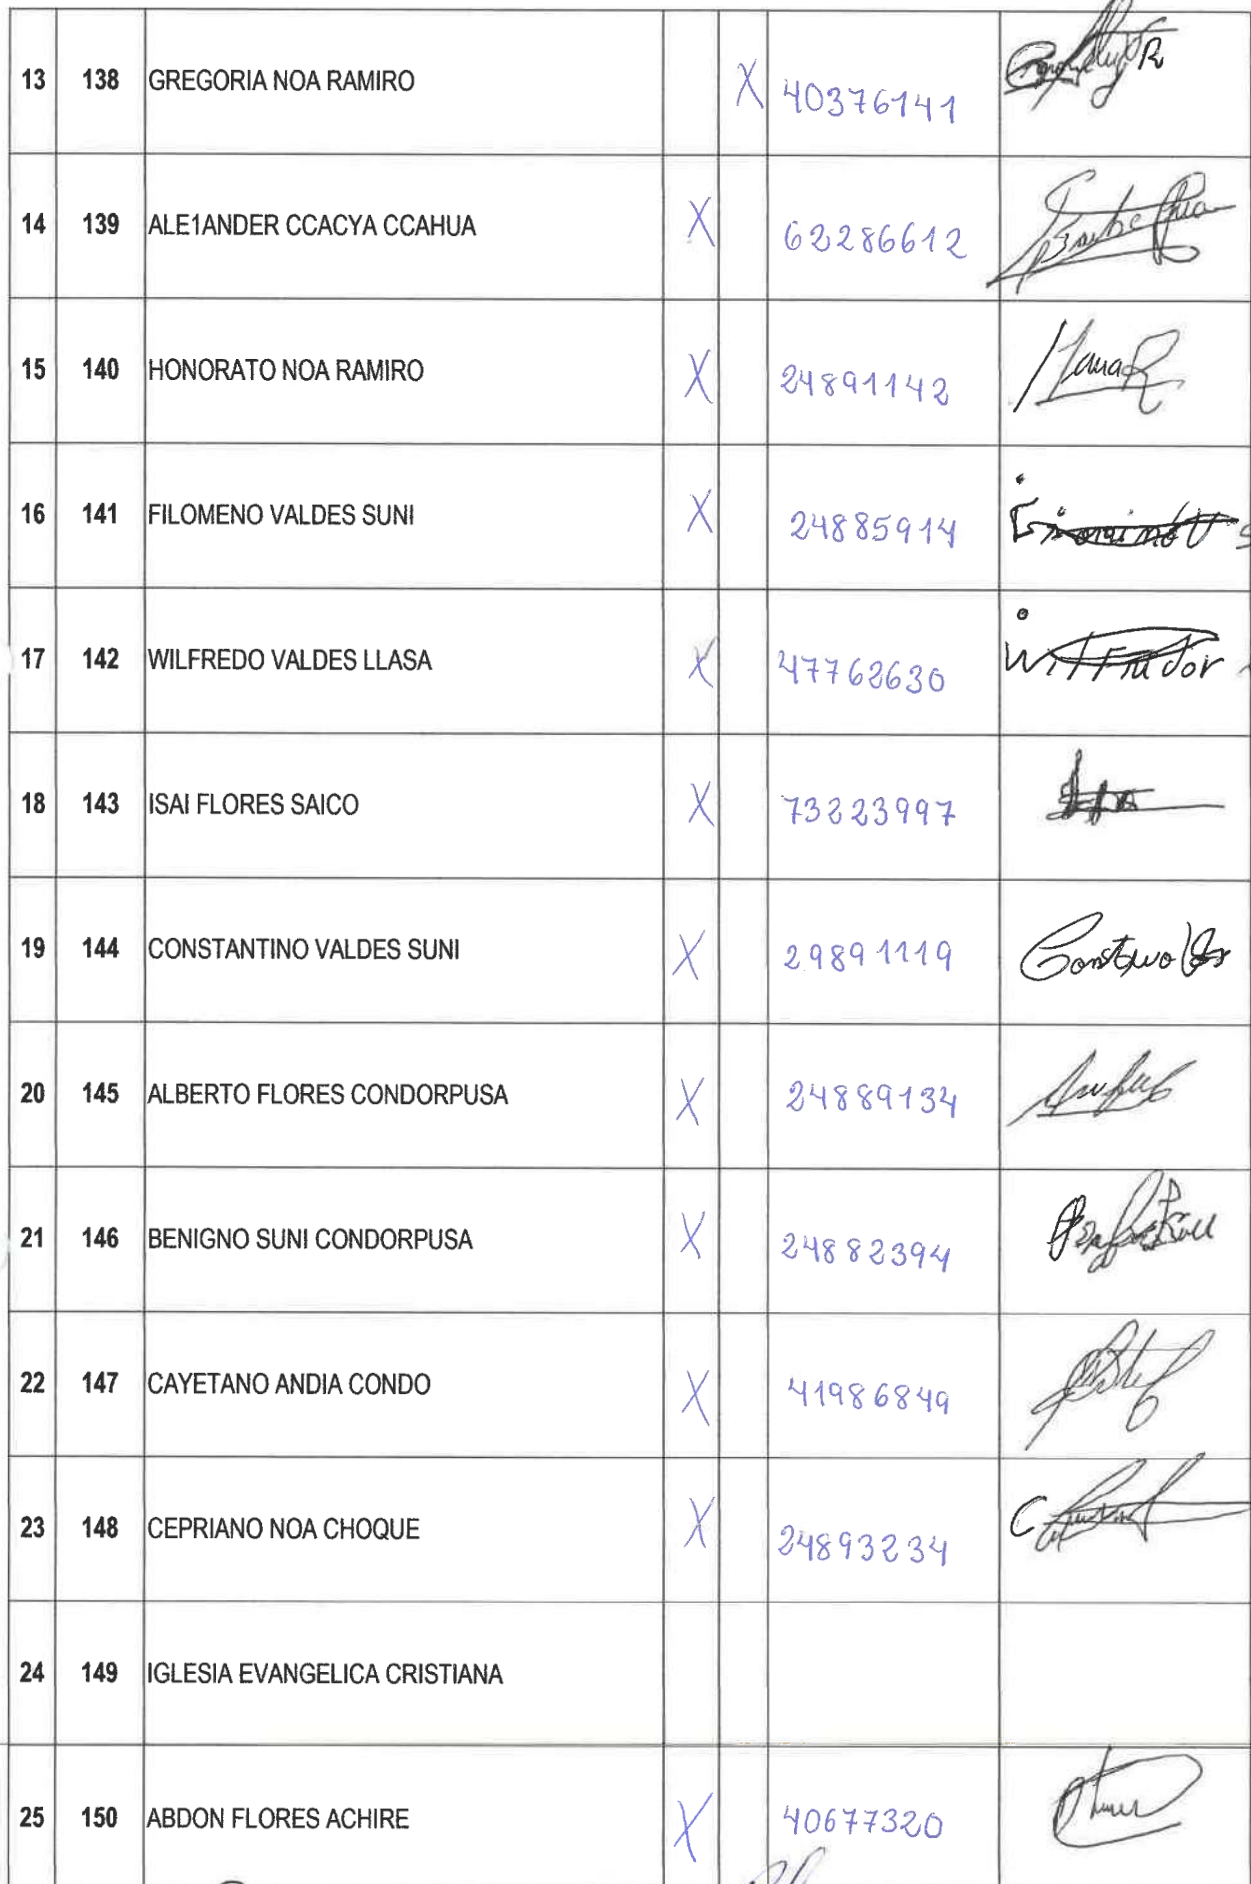 13 138 GREGORIA NOA RAMIRO X 40376141
14 139 ALE1ANDER CCACYA CCAHUA X 62286612
15 140 HONORATO NOA RAMIRO X 24891142
16 141 FILOMENO VALDES SUNI X 24885914
17 142 WILFREDO VALDES LLASA X 47762630
18 143 ISAI FLORES SAICO X 73223997
19 144 CONSTANTINO VALDES SUNI X 29891119
20 145 ALBERTO FLORES CONDORPUSA X 24889134
21 146 BENIGNO SUNI CONDORPUSA X 24882394
22 147 CAYETANO ANDIA CONDO X 41986849
23 148 CEPRIANO NOA CHOQUE X 24893234
24 149 IGLESIA EVANGELICA CRISTIANA
25 150 ABDON FLORES ACHIRE X 40677320